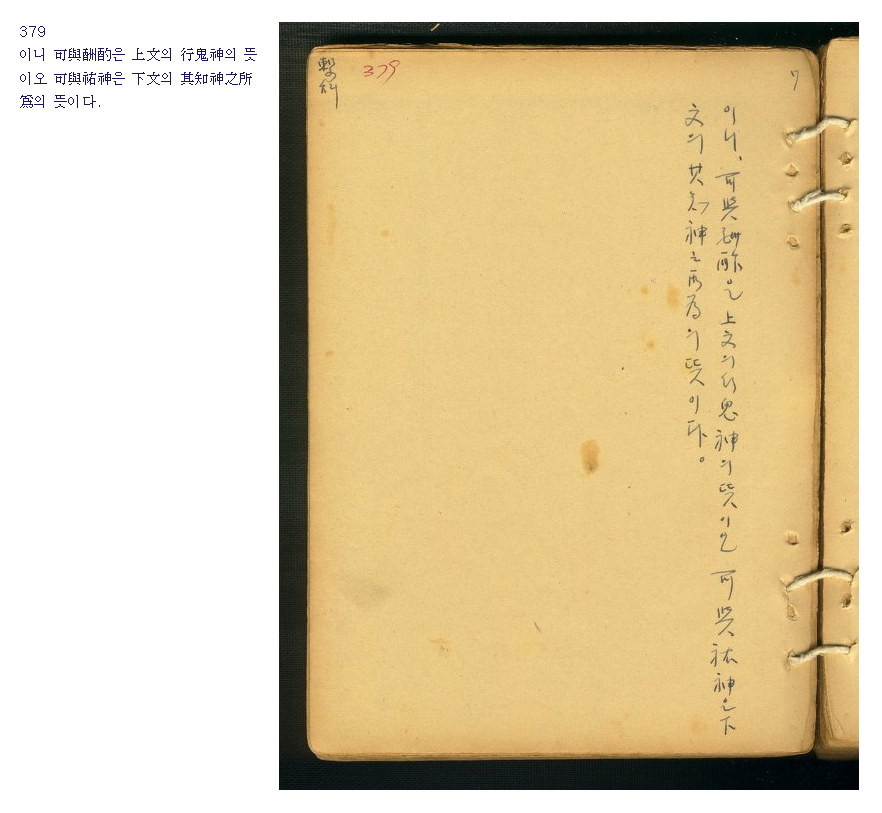 379
이니 可與酬酌은 上文의 行鬼神의 뜻
이오 可與祐神은 下文의 其知神之所
爲의 뜻이다.
379
7
이니、可與酬酢은 上文의 行鬼神의 뜻이오 可與祐神은 下
文의 其知神之所為의 뜻이다。